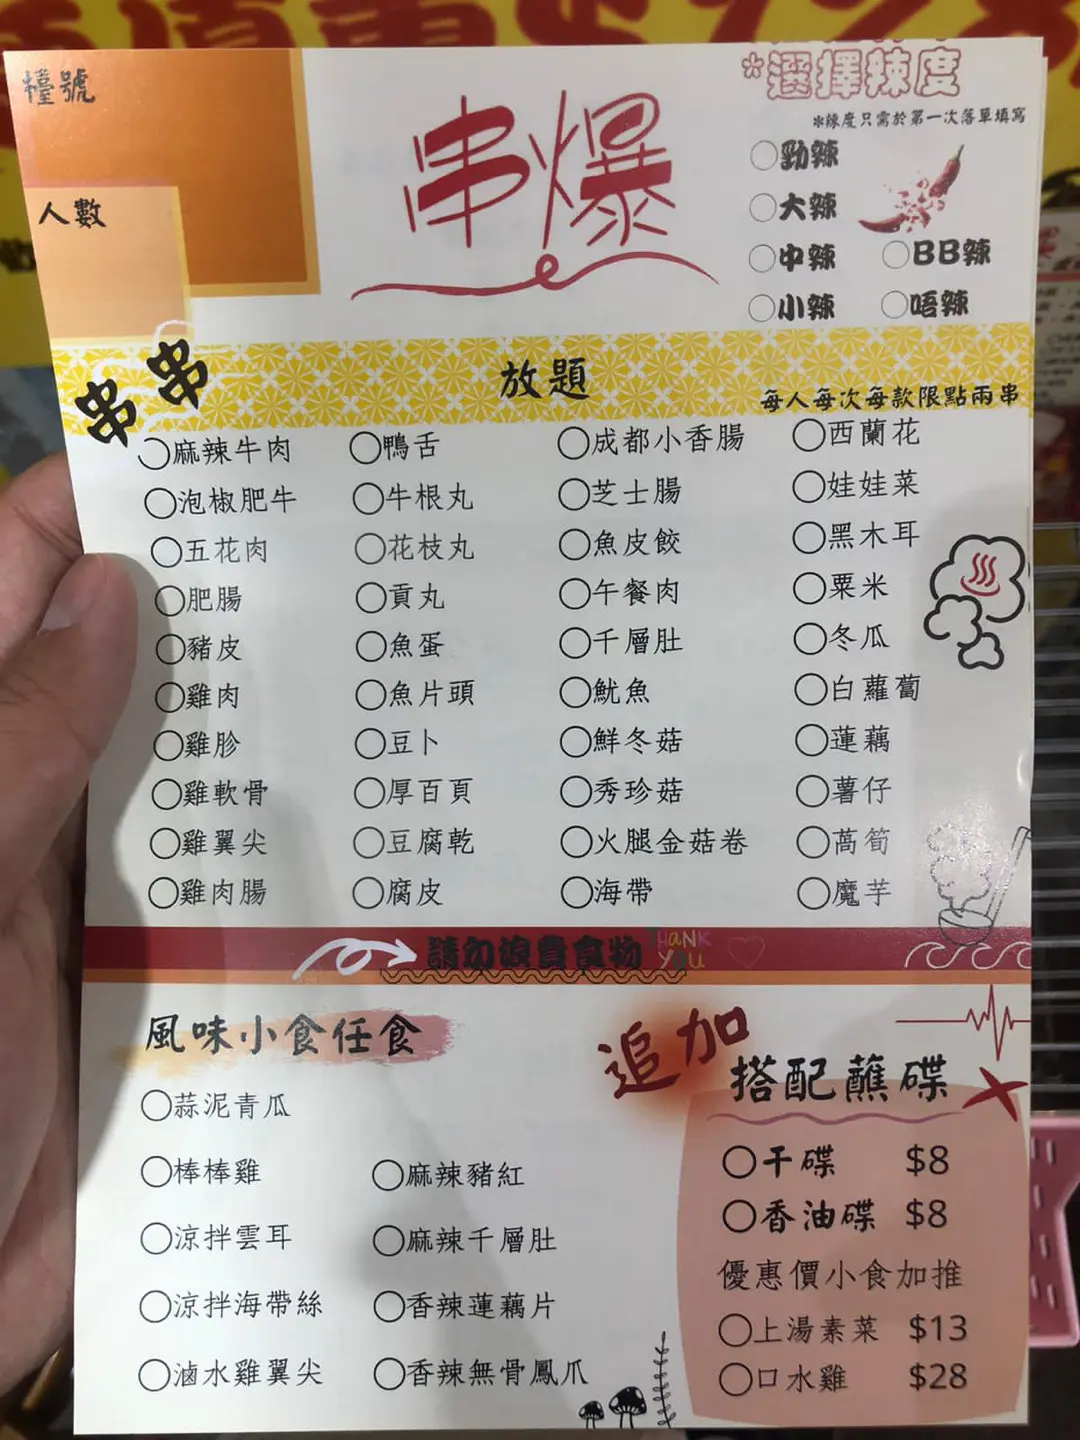 檯號
人數
串爆
*選擇辣度
*辣度只需於第一次落單填寫
勁辣
大辣
中辣
BB辣
小辣
唔辣
串串
放題
每人每次每款限點兩串
麻辣牛肉
泡椒肥牛
五花肉
肥腸
豬皮
雞肉
雞胗
雞軟骨
雞翼尖
雞肉腸
鴨舌
牛根丸
花枝丸
貢丸
魚蛋
魚片頭
豆卜
厚百頁
豆腐乾
腐皮
成都小香腸
芝士腸
魚皮餃
午餐肉
千層肚
魷魚
鮮冬菇
秀珍菇
火腿金菇卷
海帶
西蘭花
娃娃菜
黑木耳
粟米
冬瓜
白蘿蔔
蓮藕
薯仔
萵筍
魔芋
請勿浪費食物
THANK
YOU
風味小食任食
蒜泥青瓜
棒棒雞
涼拌雲耳
涼拌海帶絲
滷水雞翼尖
麻辣豬紅
麻辣千層肚
香辣蓮藕片
香辣無骨鳳爪
追加
搭配蘸碟
干碟 $8
香油碟 $8
優惠價小食加推
上湯素菜 $13
口水雞 $28